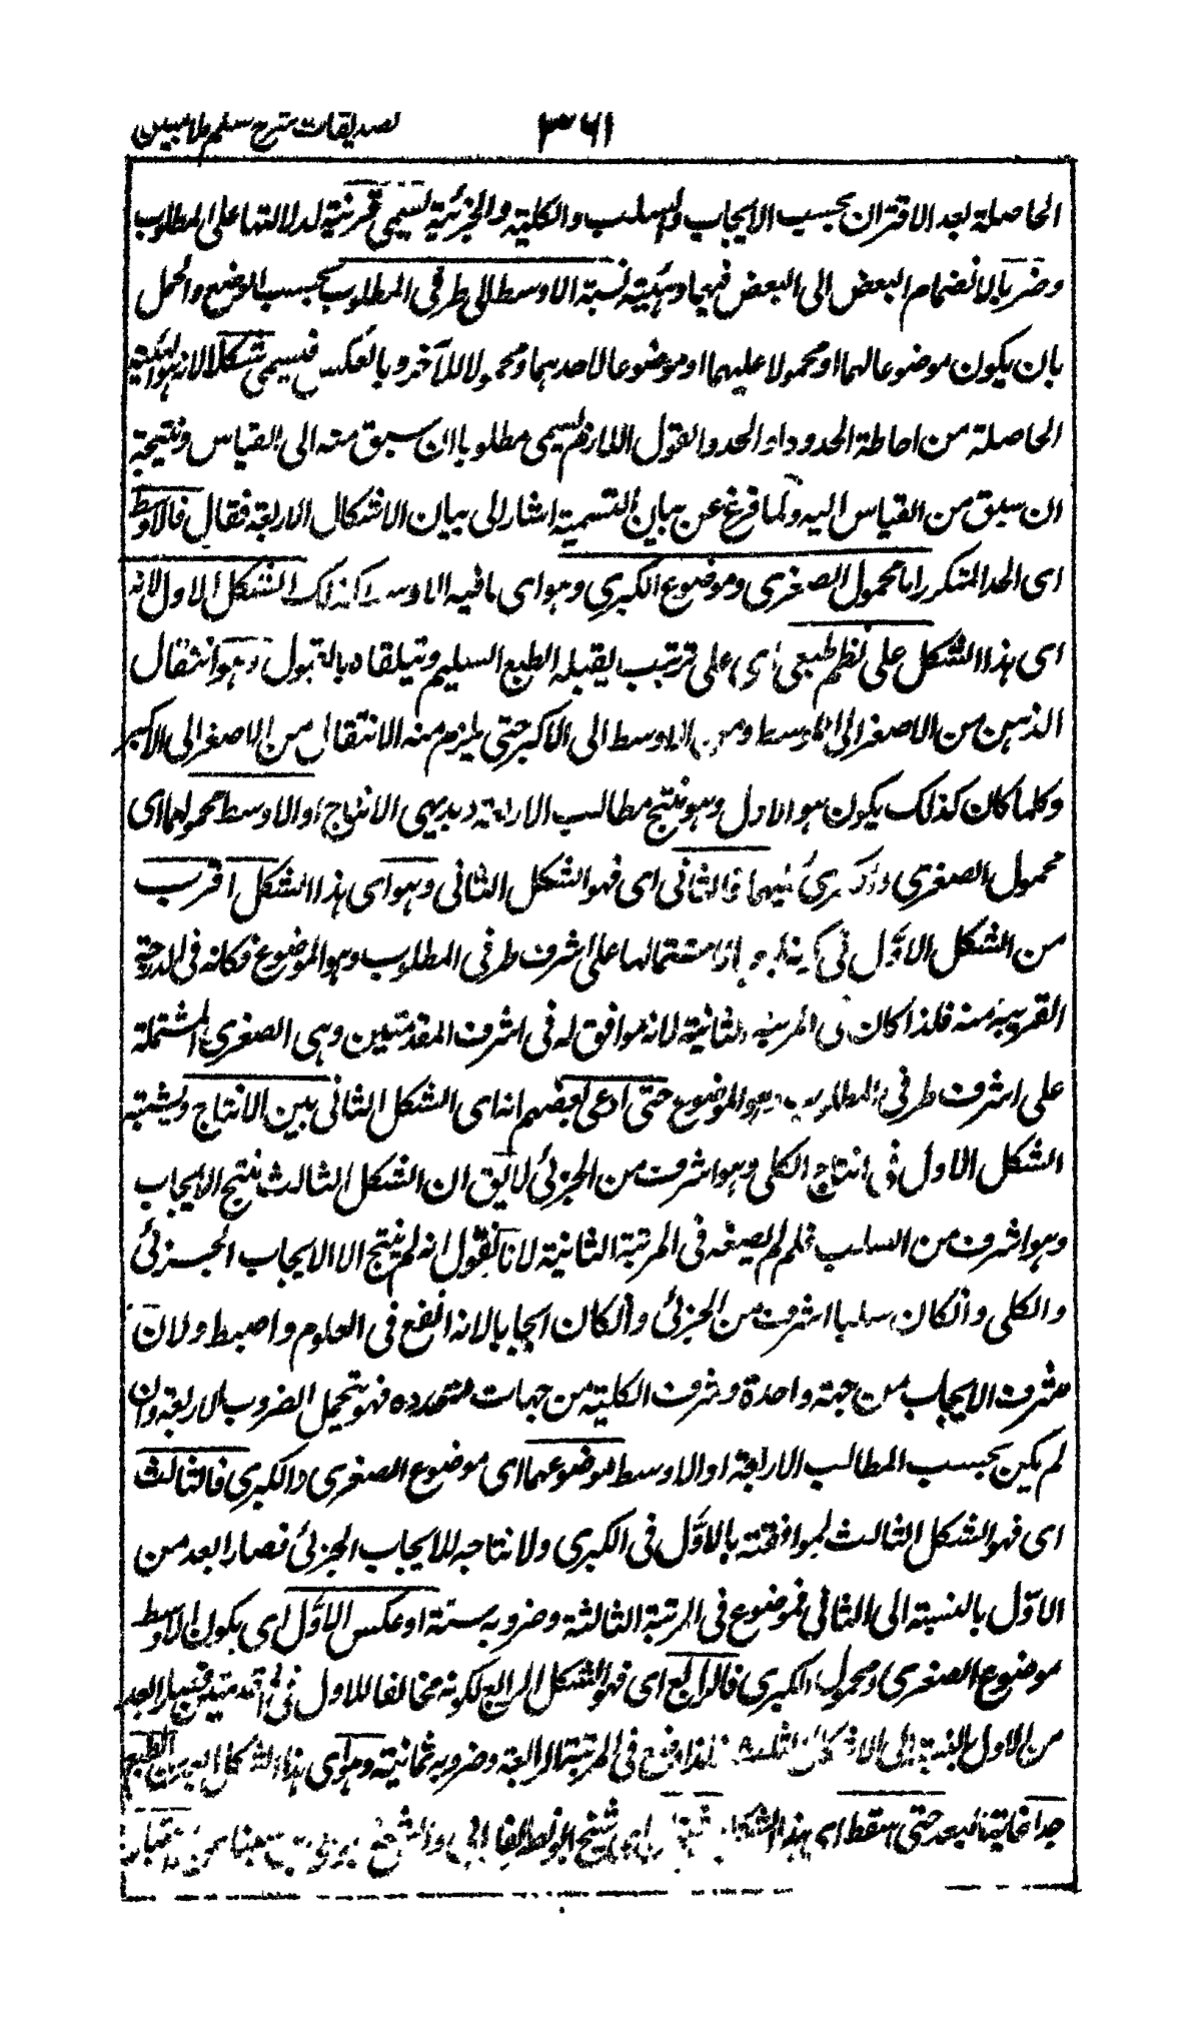 تصدیقات شرح سلم ملا مبین
۳۶۱
الحاصلة بعد الاقتران بحسب الایجاب والسلب والکلیة والجزئیة تسمی قرینة لدلالتها علی المطلوب
وضربا لانضمام البعض الی البعض فیهما وهیئیة نسبة الاوسط الی طرفی المطلوب بحسب الوضع والحمل
بان یکون موضوعا لهما او محمولا علیهما او موضوعا لاحدهما ومحمولا للآخر وبالعکس فیسمی شکلا لانه هو الهیئیة
الحاصلة من احاطة الحدود او الحد والقول اللازم یسمی مطلوبا ان سبق منه الی القیاس ونتیجة
ان سبق من القیاس الیه ولما فرغ عن بیان التسمیة اشار الی بیان الاشکال الاربعة فقال فالاوسط
ای الحد المتکرر اما محمول الصغری وموضوع الکبری وهو ای ما فیه الاوسط کذلک الشکل الاول لانه
ای هذا الشکل علی نظم طبعی ای علی ترتیب یقبله الطبع السلیم ویتلقاه بالقبول وهو انتقال
الذهن من الاصغر الی الاوسط ومن الاوسط الی الاکبر حتی یلزم منه الانتقال من الاصغر الی الاکبر
وکلما کان کذلک یکون هو الاول وهو ینتج مطالب الاربعة دبدیهی الانتاج او الاوسط محمولهما ای
محمول الصغری والکبری فیهما فالثانی ای فهو الشکل الثانی وهو ای هذا الشکل اقرب
من الشکل الاول فی لاشتمالها علی اشرف طرفی المطلوب وهو الموضوع فکانه فی الدرجة
القریبة منه فلذا کان فی المرتبة الثانیة لانه موافق له فی اشرف المقدمتین وهی الصغری المشتملة
علی اشرف طرفی المطلوب وهو الموضوع حتی ادعی بعضهم انه ای الشکل الثانی بین الانتاج ویشبه
الشکل الاول فی انتاج الکلی وهو اشرف من الجزئی لا یق ان الشکل الثالث ینتج الایجاب
وهو اشرف من السلب فلم لم یضعه فی المرتبة الثانیة لانا نقول انه لم ینتج الا الایجاب الجزئی
والکلی وان کان سلبا اشرف من الجزئی وان کان ایجابا لانه انفع فی العلوم واضبط ولان
شرف الایجاب من جهة واحدة وشرف الکلیة من جهات متعدده فهو یتحمل الضروب الاربعة وان
لم یکن بحسب المطالب الاربعة او الاوسط موضوعهما ای موضوع الصغری والکبری فالثالث
ای فهو الشکل الثالث لموافقته بالاول فی الکبری ولانتاجه للایجاب الجزئی فصار ابعد من
الاول بالنسبة الی الثانی فموضوع فی المرتبة الثالثة وضروبه ستة او عکس الاول ای یکون الاوسط
موضوع الصغری ومحمول الکبری فالرابع ای فهو الشکل الرابع لکونه مخالفا للاول فی المقدمتین فیصیر ابعد
من الاول بالنسبة الی الاشکال الثلثة فلذا وضع فی المرتبة الرابعة وضروبه ثمانیة وهو ای هذا الشکل ابعد من الطبع
جدا فانتاجه ابعد حتی اسقط ای هذا الشکل الشیخان ای شیخ ابو نصر الفارابی والشیخ